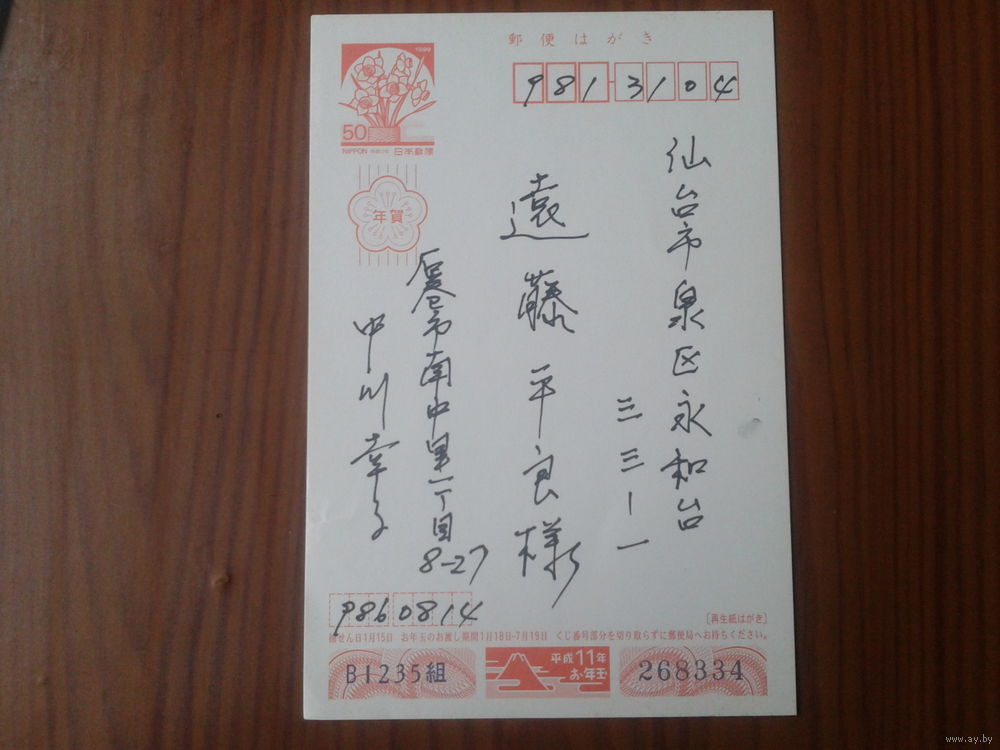 郵便はがき
981-3104
仙台市泉区永和台
三三-一
遠藤平良様
石巻市南中里一丁目
8-27
中川幸子
9860814
1999
50
NIPPON 日本郵便
年賀
〔再生紙はがき〕
抽せん日1月15日 お年玉のお渡し期間1月18日-7月19日 くじ番号部分を切り取らずに郵便局へお持ちください。
B1235組
平成11年
お年玉
268334
www.ay.by